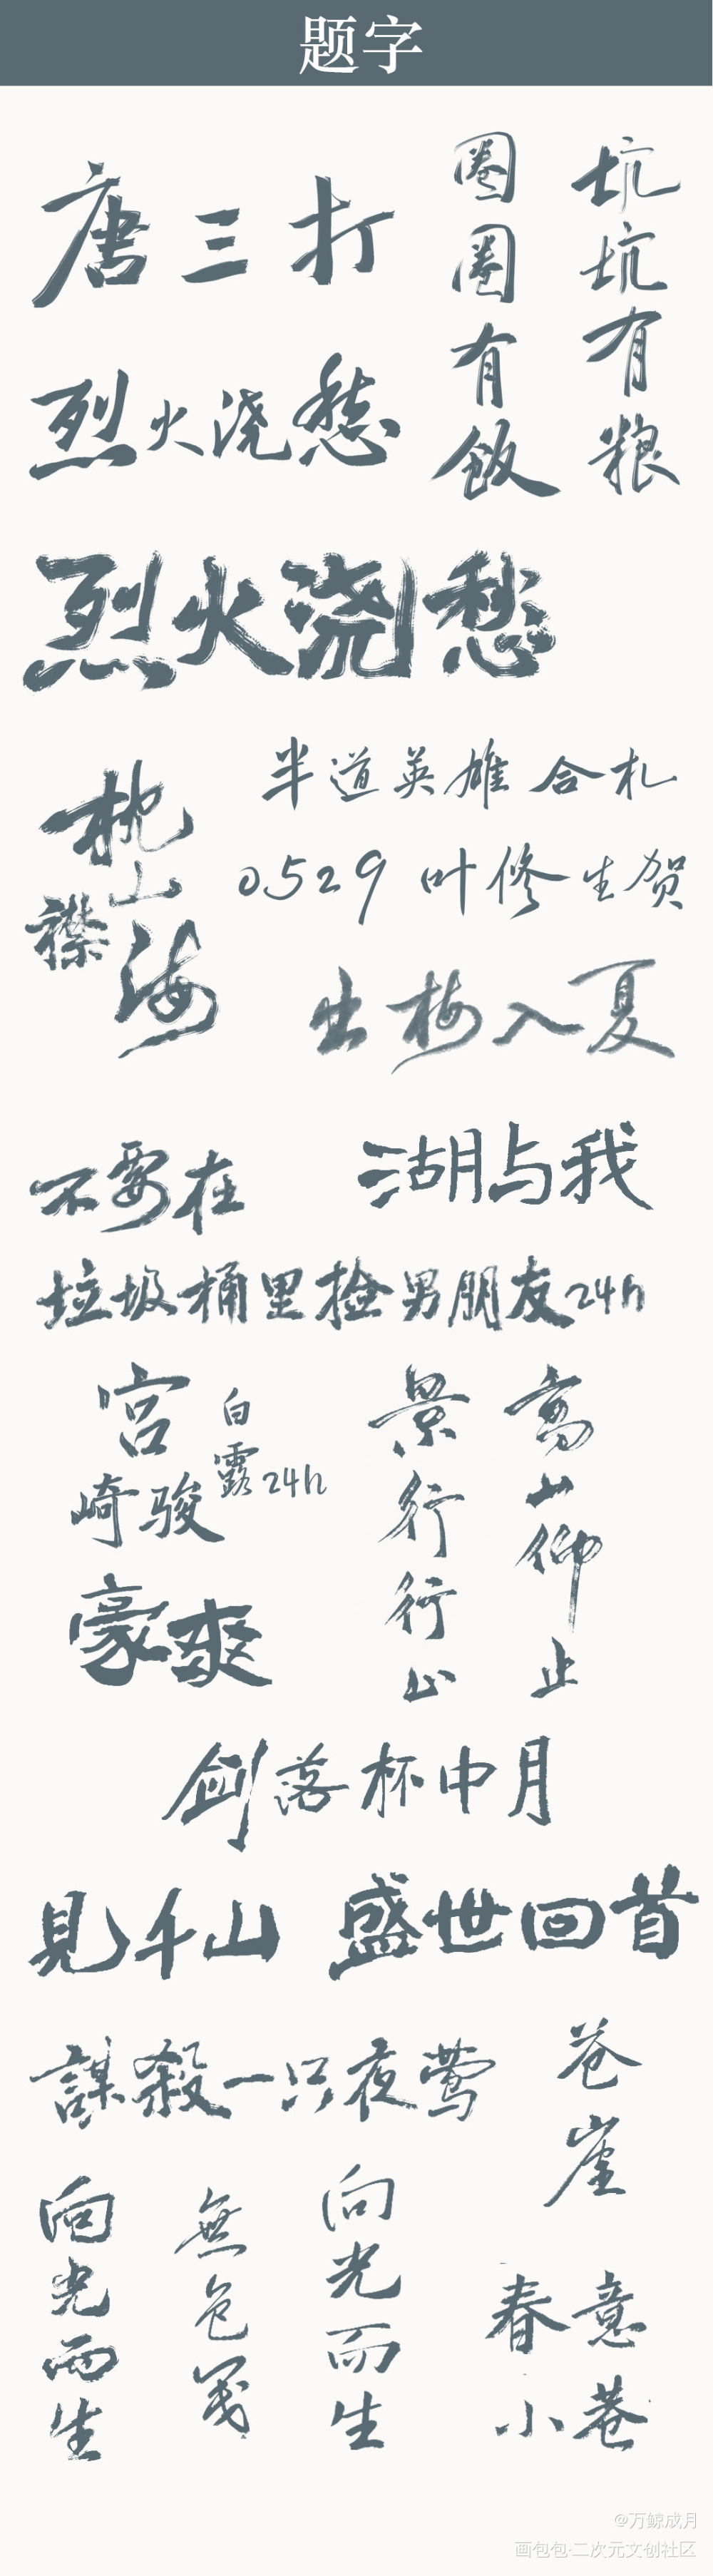 题字
唐三打
坑坑有粮
圈圈有飯
烈火浇愁
烈火浇愁
枕山
襟海
半道英雄 合札
0529 叶修生贺
出梅入夏
湖与我
不要在
垃圾桶里捡男朋友24h
宫崎骏
白露24h
高山仰止
景行行止
豪爽
剑落杯中月
見千山
盛世回首
謀殺一只夜莺
苍崖
向光而生
無色笺
向光而生
春意
小巷
@万鲸成月
画包包·二次元文创社区